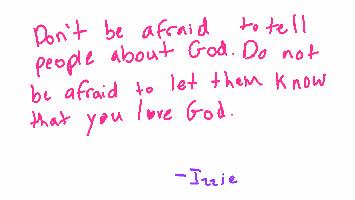 Don't be afraid to tell
people about God. Do not
be afraid to let them know
that you love God.
-Izzie